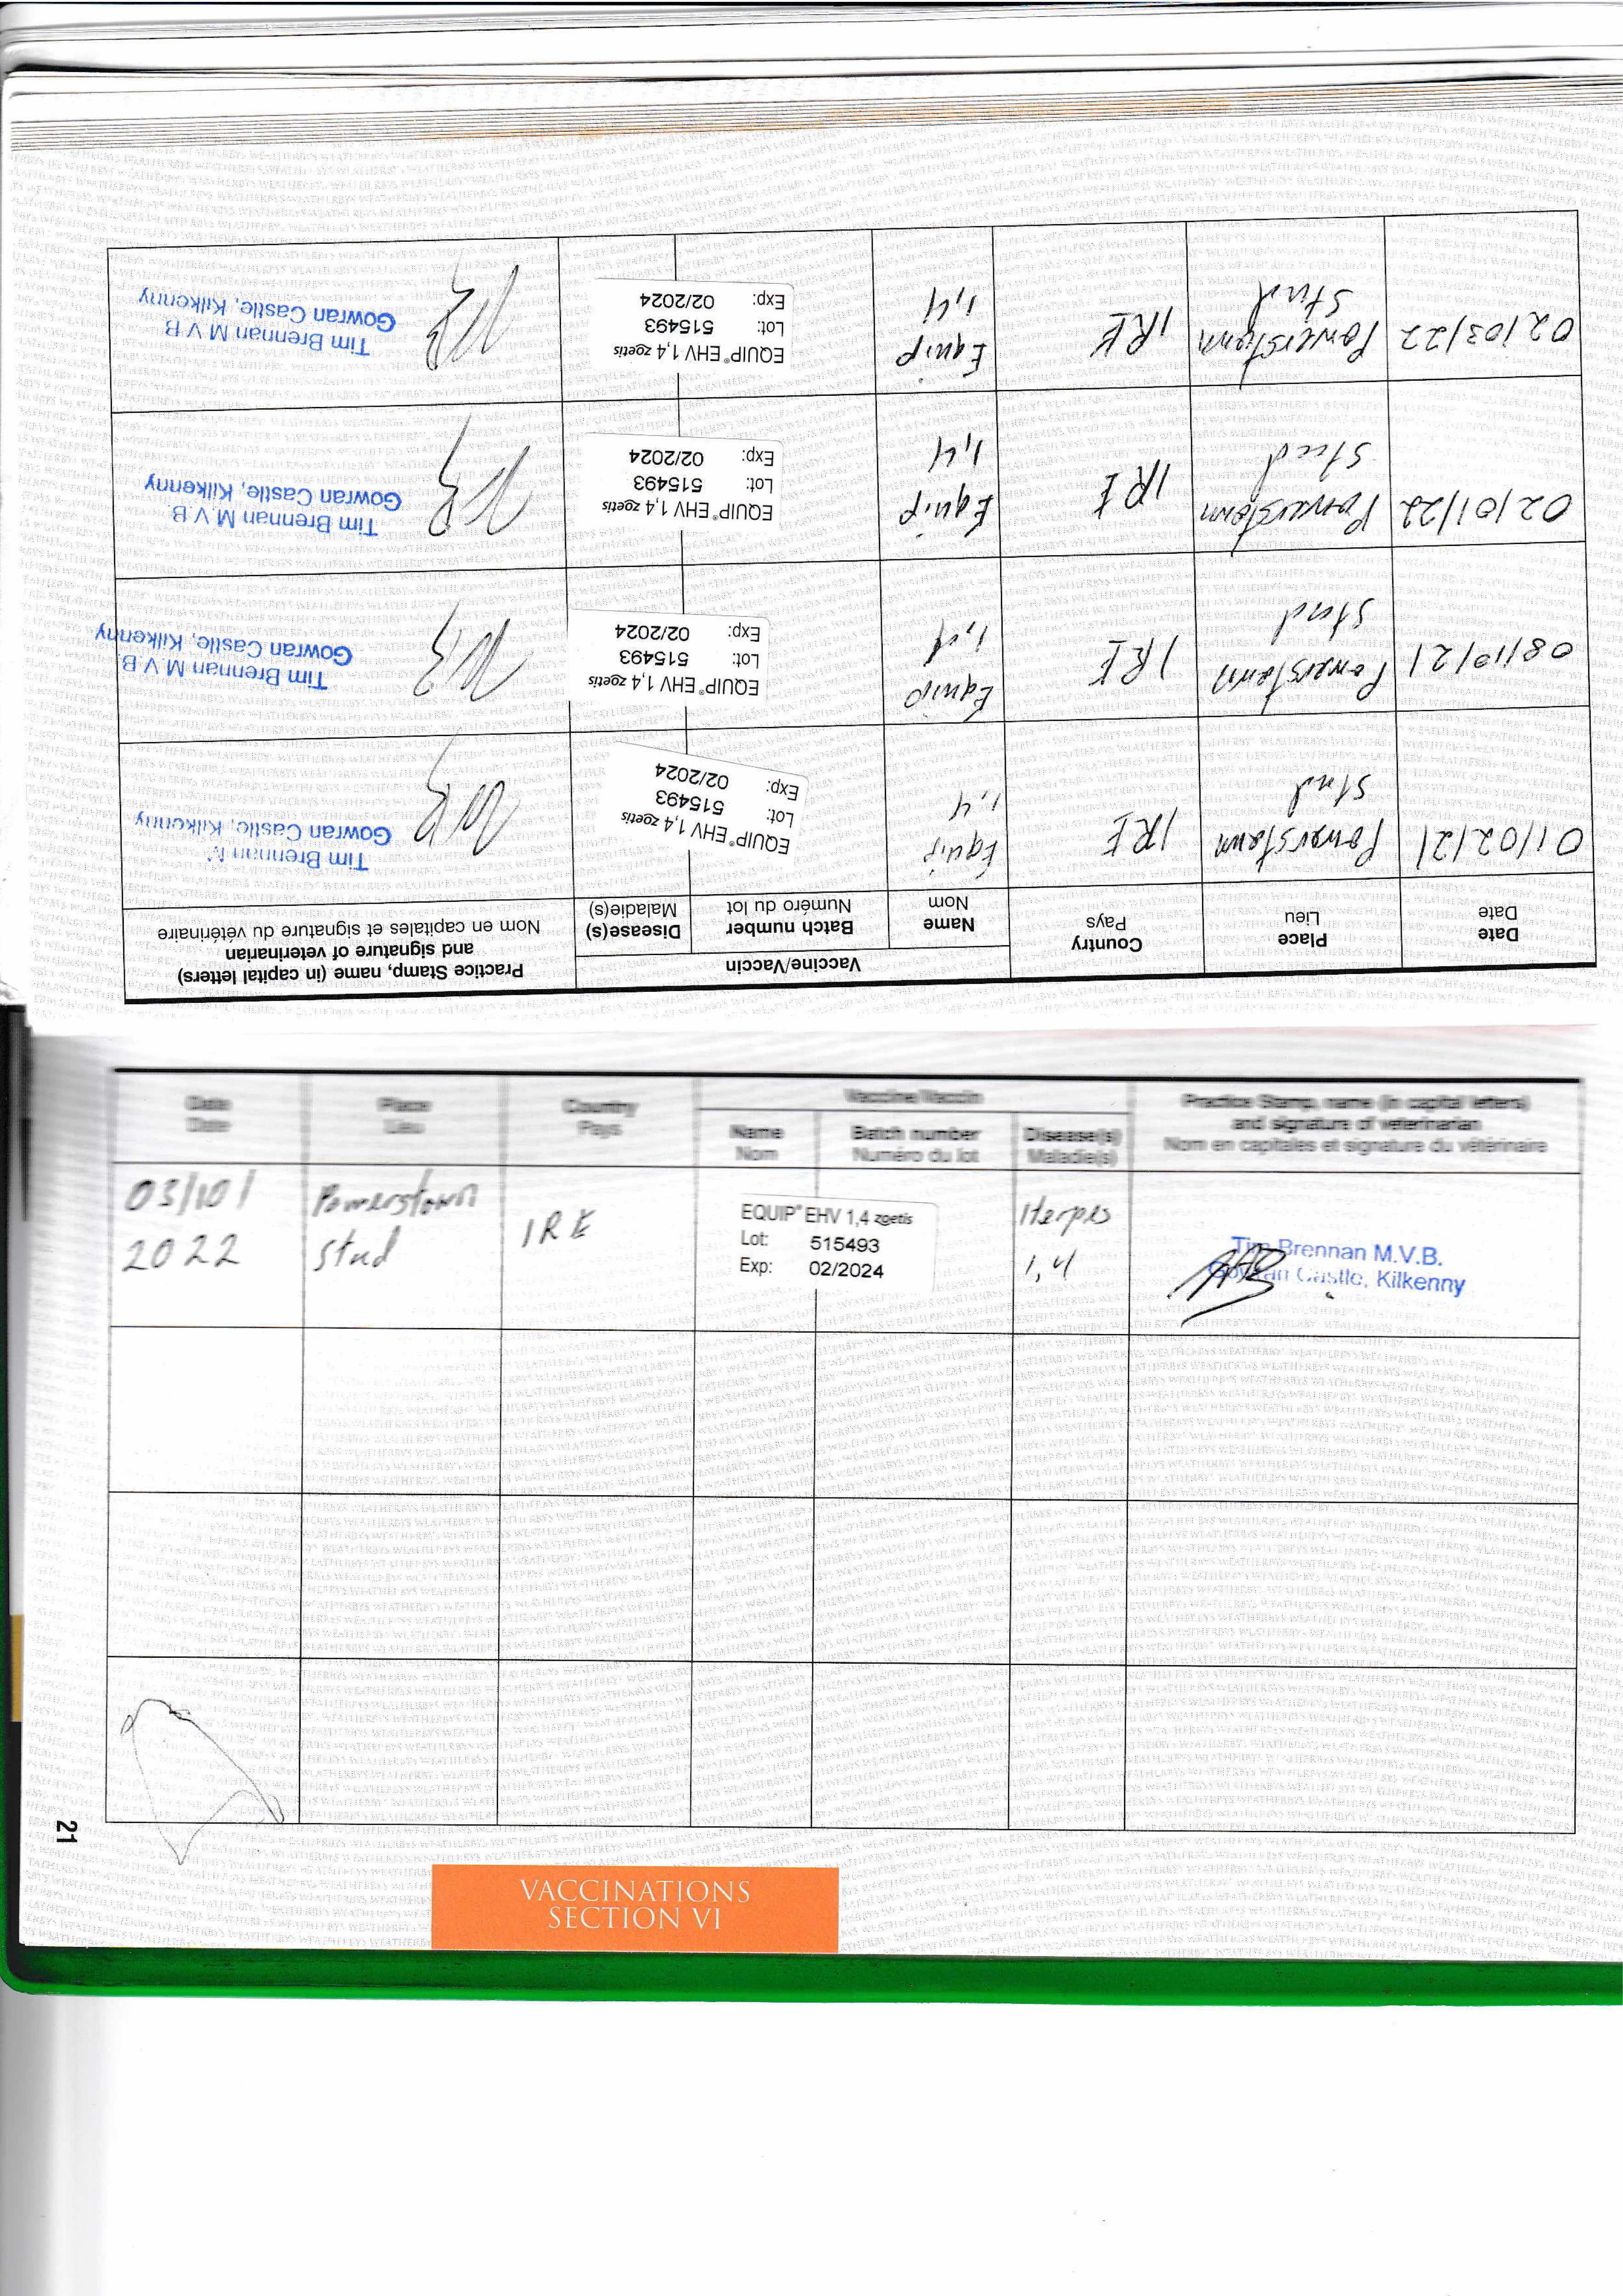 Date
Date
Place
Lieu
Country
Pays
Vaccine/Vaccin
Name
Nom
Batch number
Numéro du lot
Disease(s)
Maladie(s)
Practice Stamp, name (in capital letters)
and signature of veterinarian
Nom en capitales et signature du vétérinaire
01/02/21
Powerstown
Stud
IRE
Equip
1,4
EQUIP® EHV 1,4 zoetis
Lot: 515493
Exp: 02/2024
Tim Brennan M
Gowran Castle, Kilkenny
08/10/21
Powerstown
Stud
IRE
Equip
1,4
EQUIP® EHV 1,4 zoetis
Lot: 515493
Exp: 02/2024
Tim Brennan M.V.B.
Gowran Castle, Kilkenny
02/01/22
Powerstown
Stud
IRE
Equip
1,4
EQUIP® EHV 1,4 zoetis
Lot: 515493
Exp: 02/2024
Tim Brennan M.V.B.
Gowran Castle, Kilkenny
02/03/22
Powerstown
Stud
IRE
Equip
1,4
EQUIP® EHV 1,4 zoetis
Lot: 515493
Exp: 02/2024
Tim Brennan M.V.B
Gowran Castle, Kilkenny
Date
Date
Place
Lieu
Country
Pays
Vaccine/Vaccin
Name
Nom
Batch number
Numéro du lot
Disease(s)
Maladie(s)
Practice Stamp, name (in capital letters)
and signature of veterinarian
Nom en capitales et signature du vétérinaire
03/10/
2022
Powerstown
Stud
IRE
EQUIP® EHV 1,4 zoetis
Lot: 515493
Exp: 02/2024
Herpes
1,4
Tim Brennan M.V.B.
Gowran Castle, Kilkenny
21
VACCINATIONS
SECTION VI